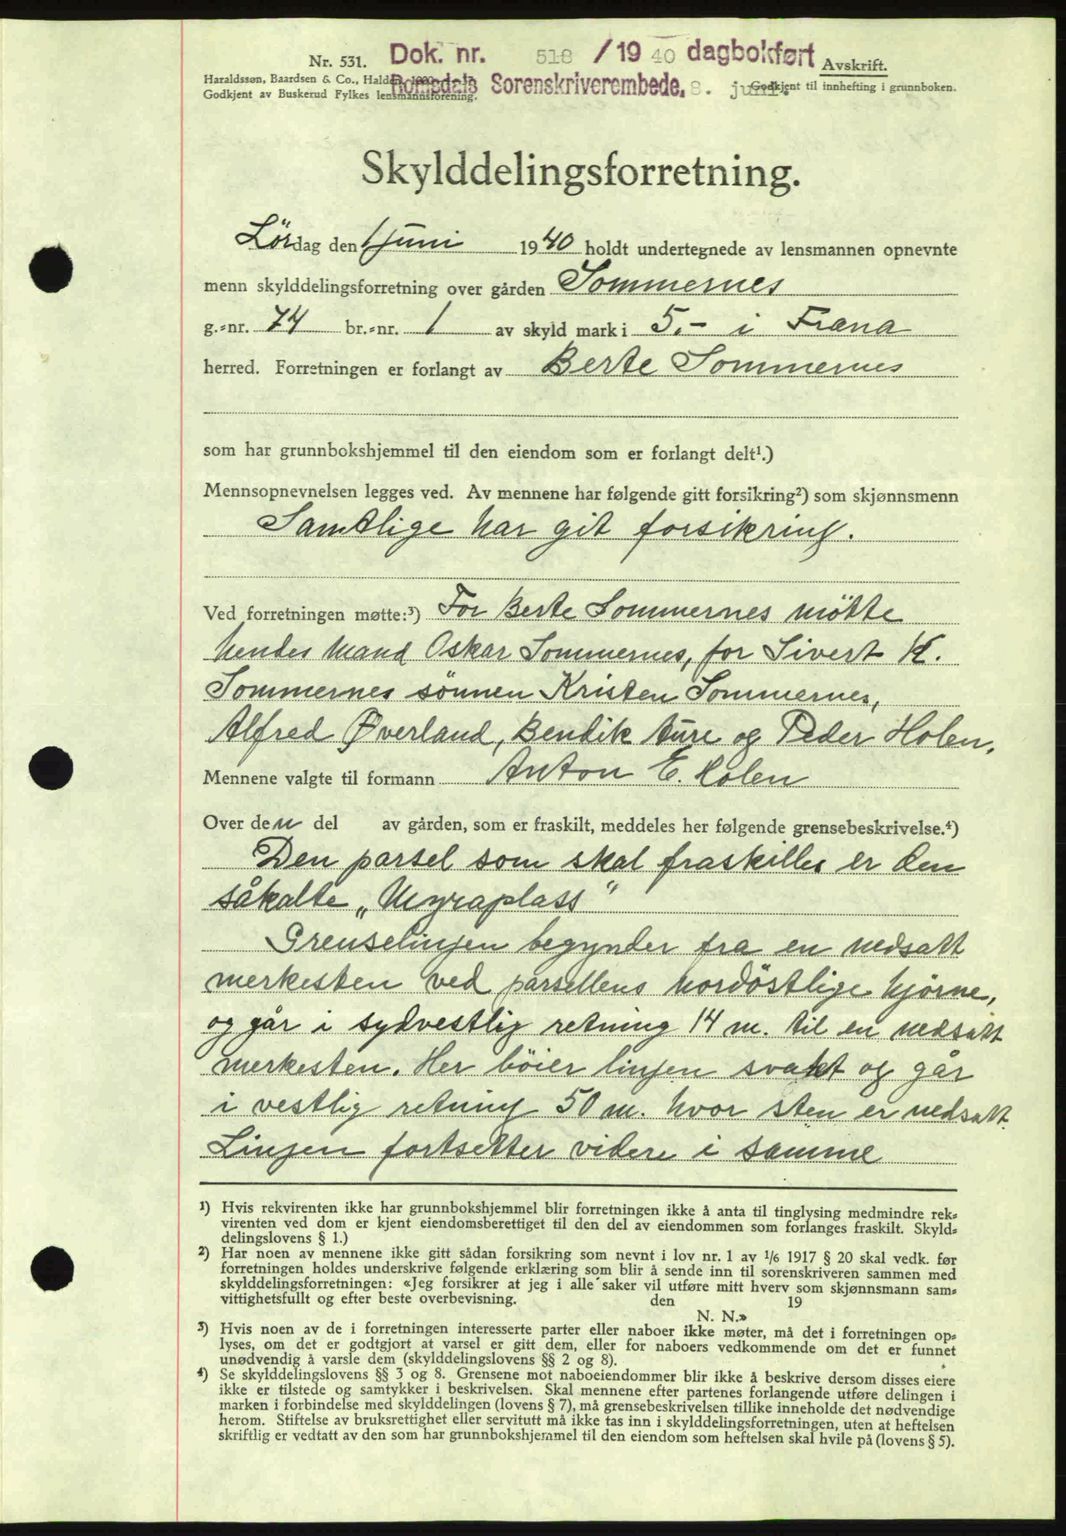 Nr. 531.
Dok. nr. 518 / 1940 dagbokført
Avskrift.
Haraldssøn, Baardsen & Co., Halden.
Romsdals Sorenskriverembede, 8. juni.
Godkjent til innhefting i grunnboken.
Godkjent av Buskerud Fylkes lensmannsforening.
Skylddelingsforretning.
Lördag den 1 juni 1940 holdt undertegnede av lensmannen opnevnte
menn skylddelingsforretning over gården Sommernes
g.=nr. 74 br.=nr. 1 av skyld mark i 5.- i Fræna
herred. Forretningen er forlangt av Berte Sommernes
som har grunnbokshjemmel til den eiendom som er forlangt delt¹.)
Mennsopnevnelsen legges ved. Av mennene har følgende gitt forsikring²) som skjønnsmenn
Samtlige har git forsikring.
Ved forretningen møtte:³) For Berte Sommernes mötte
hendes mand Oskar Sommernes, for Sivert K.
Sommernes sönnen Kristen Sommernes,
Alfred Øverland, Bendik Aure og Peder Holen.
Mennene valgte til formann Anton E. Holen
Over den del av gården, som er fraskilt, meddeles her følgende grensebeskrivelse.⁴)
Den parsel som skal fraskilles er den
såkalte „Myraplass"
Grenselinjen begynder fra en nedsatt
merkesten ved parsellens nordöstlige hjörne,
og går i sydvestlig retning 14 m. til en nedsatt
merkesten. Her böier linjen svakt og går
i vestlig retning 50 m. hvor sten er nedsatt.
Linjen fortsetter videre i samme
¹) Hvis rekvirenten ikke har grunnbokshjemmel blir forretningen ikke å anta til tinglysing medmindre rek=
virenten ved dom er kjent eiendomsberettiget til den del av eiendommen som forlanges fraskilt. Skyld=
delingslovens § 1.)
²) Har noen av mennene ikke gitt sådan forsikring som nevnt i lov nr. 1 av 1/6 1917 § 20 skal vedk. før
forretningen holdes underskrive følgende erklæring som blir å sende inn til sorenskriveren sammen med
skylddelingsforretningen: «Jeg forsikrer at jeg i alle saker vil utføre mitt hverv som skjønnsmann sam=
vittighetsfullt og efter beste overbevisning. den 19
N. N.»
³) Hvis noen av de i forretningen interesserte parter eller naboer ikke møter, må det i forretningen op=
lyses, om det er godtgjort at varsel er gitt dem, eller for naboers vedkommende om det er funnet
unødvendig å varsle dem (skylddelingslovens §§ 2 og 8).
⁴) Se skylddelingslovens §§ 3 og 8. Grensene mot naboeiendommer blir ikke å beskrive dersom disses eiere
ikke er tilstede og samtykker i beskrivelsen. Skal mennene efter partenes forlangende utføre delingen i
marken i forbindelse med skylddelingen (lovens § 7), må grensebeskrivelsen tillike inneholde det nødvendige
herom. Stiftelse av bruksrettighet eller servitutt må ikke tas inn i skylddelingsforretningen, uten at heftelsen
skriftlig er vedtatt av den som har grunnbokshjemmel til den eiendom som heftelsen skal hvile på (lovens § 5).